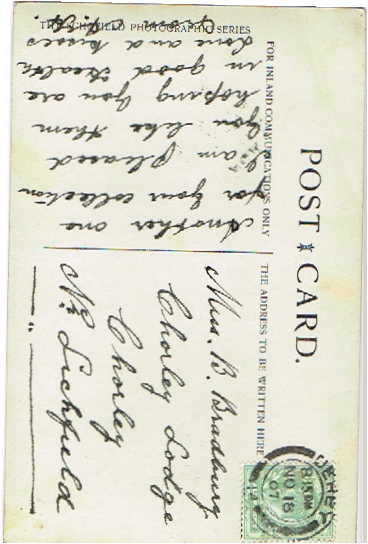 THE SCHOFIELD PHOTOGRAPHIC SERIES
POST CARD.
FOR INLAND COMMUNICATIONS ONLY
THE ADDRESS TO BE WRITTEN HERE
Another one
for your collection
I am pleased
you like them
hoping you are
in good health
love and kisses
from
Miss. B. Bradbury
Chorley Lodge
Chorley
Nr. Lichfield
DERBY
NO 18
07